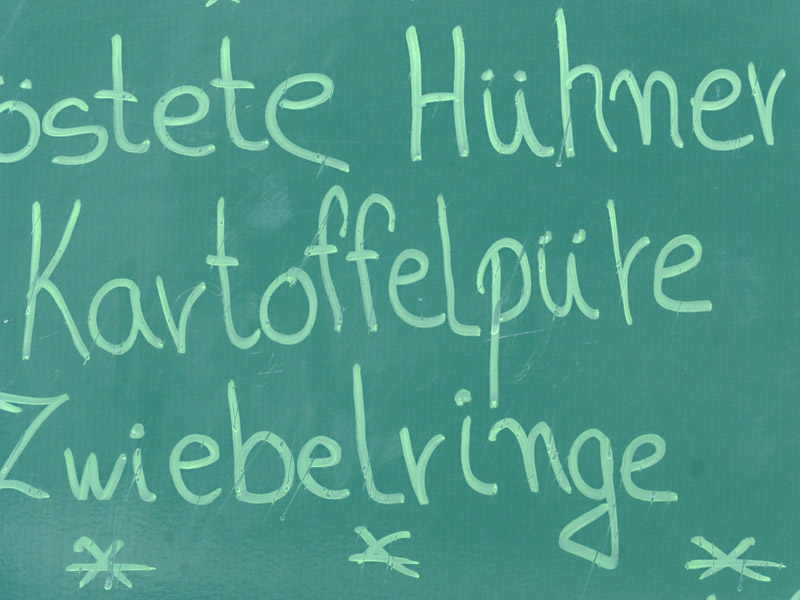 östete Hühner
Kartoffelpüre
Zwiebelringe